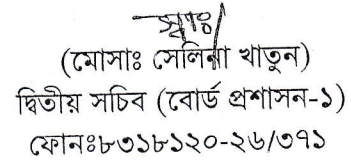 স্বাঃ/
(মোসাঃ সেলিনা খাতুন)
দ্বিতীয় সচিব (বোর্ড প্রশাসন-১)
ফোনঃ৮৩১৮১২০-২৬/৩৭১